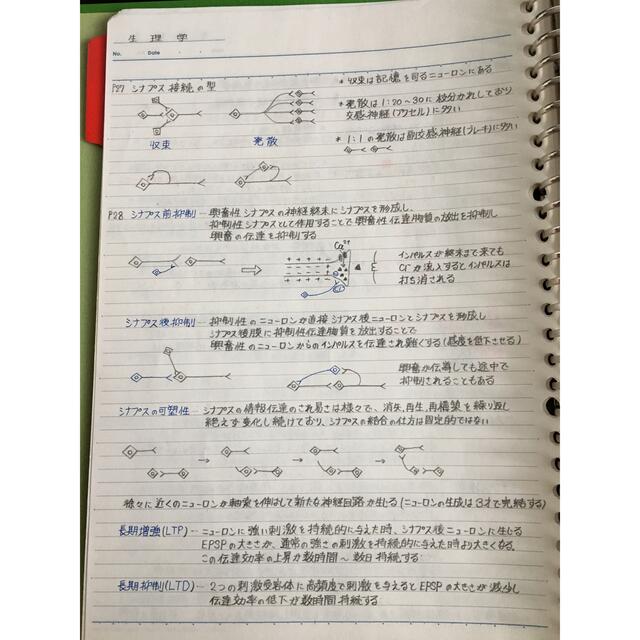 生理学
No.
Date
P27 シナプス接続の型
* 収束は記憶を司るニューロンにある
* 発散は1:20~30に枝分かれしており
交感神経(アクセル)に多い
* 1:1の発散は副交感神経(ブレーキ)に多い
収束
発散
P28 シナプス前抑制 … 興奮性シナプスの神経終末にシナプスを形成し、
抑制性シナプスとして作用することで興奮性伝達物質の放出を抑制し
興奮の伝達を抑制する
Ca²⁺
+ + + +
- - - -
- - - -
+ + + +
インパルスが終末まで来ても
Cl⁻が流入するとインパルスは
打ち消される
シナプス後抑制 … 抑制性のニューロンが直接シナプス後ニューロンとシナプスを形成し
シナプス後膜に抑制性伝達物質を放出することで
興奮性のニューロンからのインパルスを伝達され難くする(感度を低下させる)
興奮が伝導しても途中で
抑制されることもある
シナプスの可塑性 … シナプスの情報伝達のされ易さは様々で、消失、再生、再構築を繰り返し
絶えず変化し続けており、シナプスの結合の仕方は固定的ではない
様々に近くのニューロンが軸索を伸ばして新たな神経回路が生じる(ニューロンの生成は3才で完結する)
長期増強(LTP) … ニューロンに強い刺激を持続的に与えた時、シナプス後ニューロンに生じる
EPSPの大きさが、通常の強さの刺激を持続的に与えた時より大きくなる。
この伝達効率の上昇が数時間~数日持続する
長期抑制(LTD) … 2つの刺激受容体に高頻度で刺激を与えるとEPSPの大きさが減少し
伝達効率の低下が数時間持続する